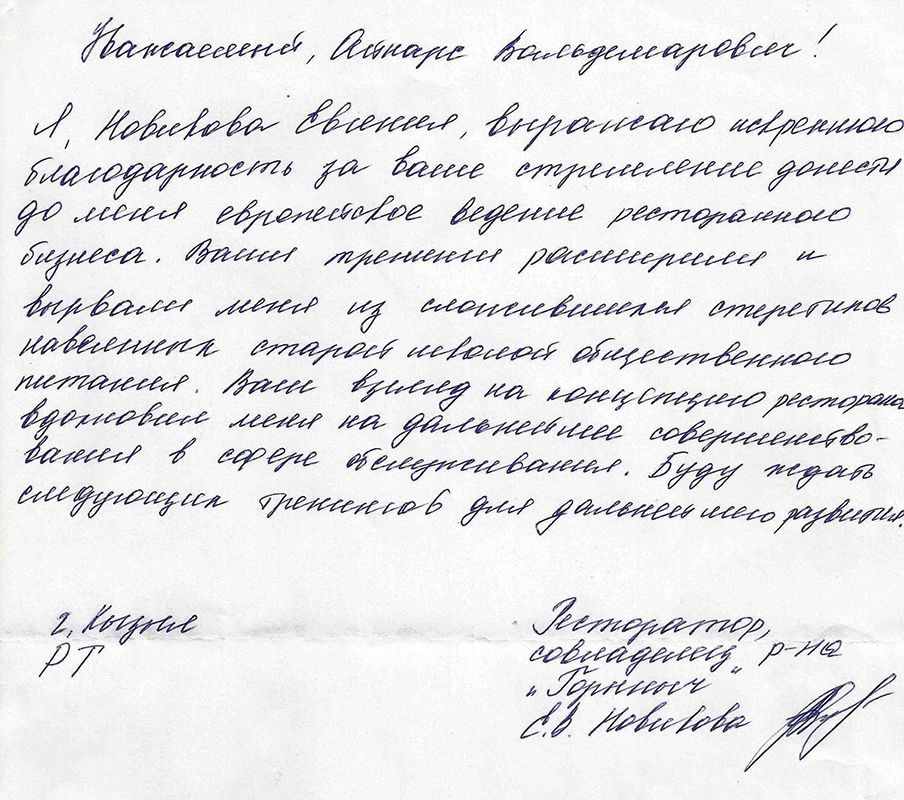 Уважаемый, Айнарс Вальдемарович!
Я, Новикова Евгения, выражаю искреннюю
благодарность за ваше стремление донести
до меня европейское ведение ресторанного
бизнеса. Ваши тренинги расширили и
вырвали меня из сложившихся стеретипов
навеянных старой школой общественного
питания. Ваш взгляд на концепцию ресторана
вдохновил меня на дальнейшее совершенство-
вания в сфере обслуживания. Буду ждать
следующих тренингов для дальнейшего развития.
г. Кызыл
РТ
Ресторатор,
совладелец р-на
"Горыныч"
Е.В. Новикова